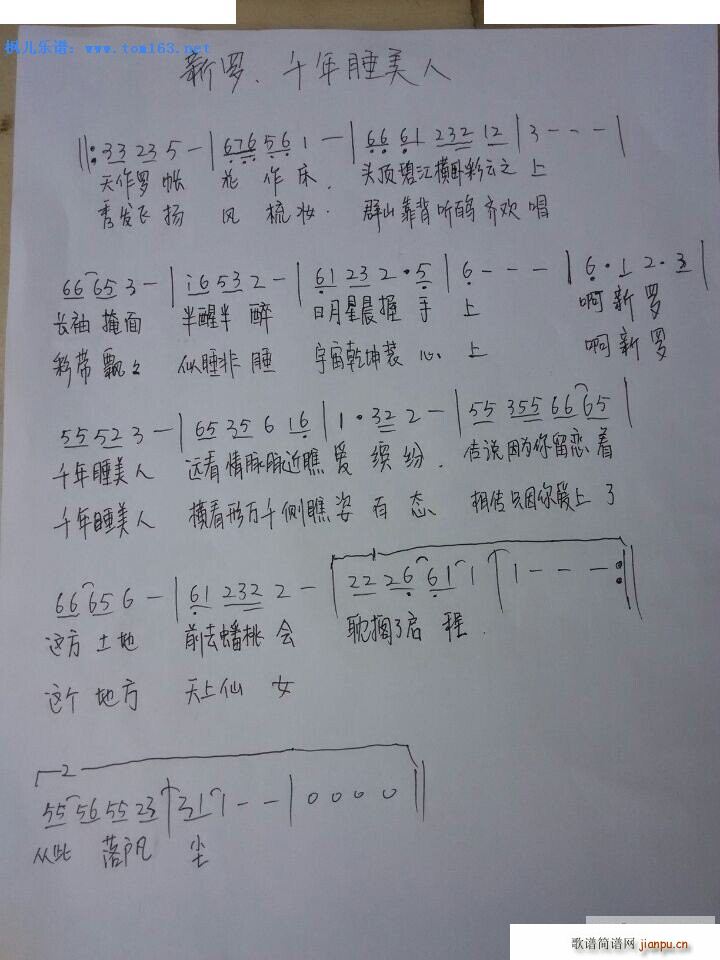 枫儿乐谱：www.tom163.net
新罗、千年睡美人
‖: 33 23 5 - | 676 56 1 - | 66 61 232 12 | 3 - - - |
天作罗帐 花作床. 头顶碧江横卧彩云之上
秀发飞扬 风梳妆. 群山靠背听鸟齐欢唱
66 65 3 - | i6 53 2 - | 61 23 2 · 5 | 6 - - - | 6 · 1 2 · 3 |
长袖掩面 半醒半醉 日月星晨握手上 啊新罗
彩带飘々 似睡非睡 宇宙乾坤装心上 啊新罗
55 52 3 - | 65 35 6 16 | 1 · 32 2 - | 55 355 66 65 |
千年睡美人 远看情脉脉近瞧爱缤纷. 传说因为你留恋着
千年睡美人 横看形万千侧瞧姿百态 相传只因你爱上了
66 65 6 - | 61 232 2 - | 22 26 61 1 | 1 - - - :‖
这方土地 前去蟠桃会 耽搁了启程.
这个地方 天上仙女
2
55 56 55 23 | 31 1 - - | 0 0 0 0 ‖
从此 落户凡尘
歌谱简谱网 jianpu.cn